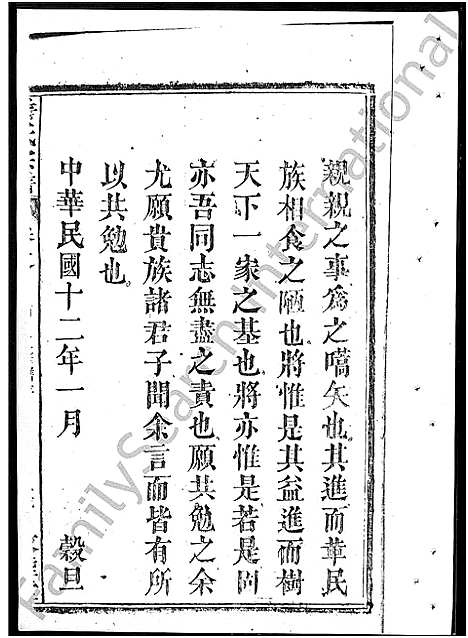 親親之事爲之嚆矢也其進而華民
族相食之陋也將惟是其益進而樹
天下一家之基也將亦惟是若是固
亦吾同志無盡之責也願共勉之余
尤願貴族諸君子聞余言而皆有所
以共勉也
中華民國十二年一月 穀旦
FamilySearch International